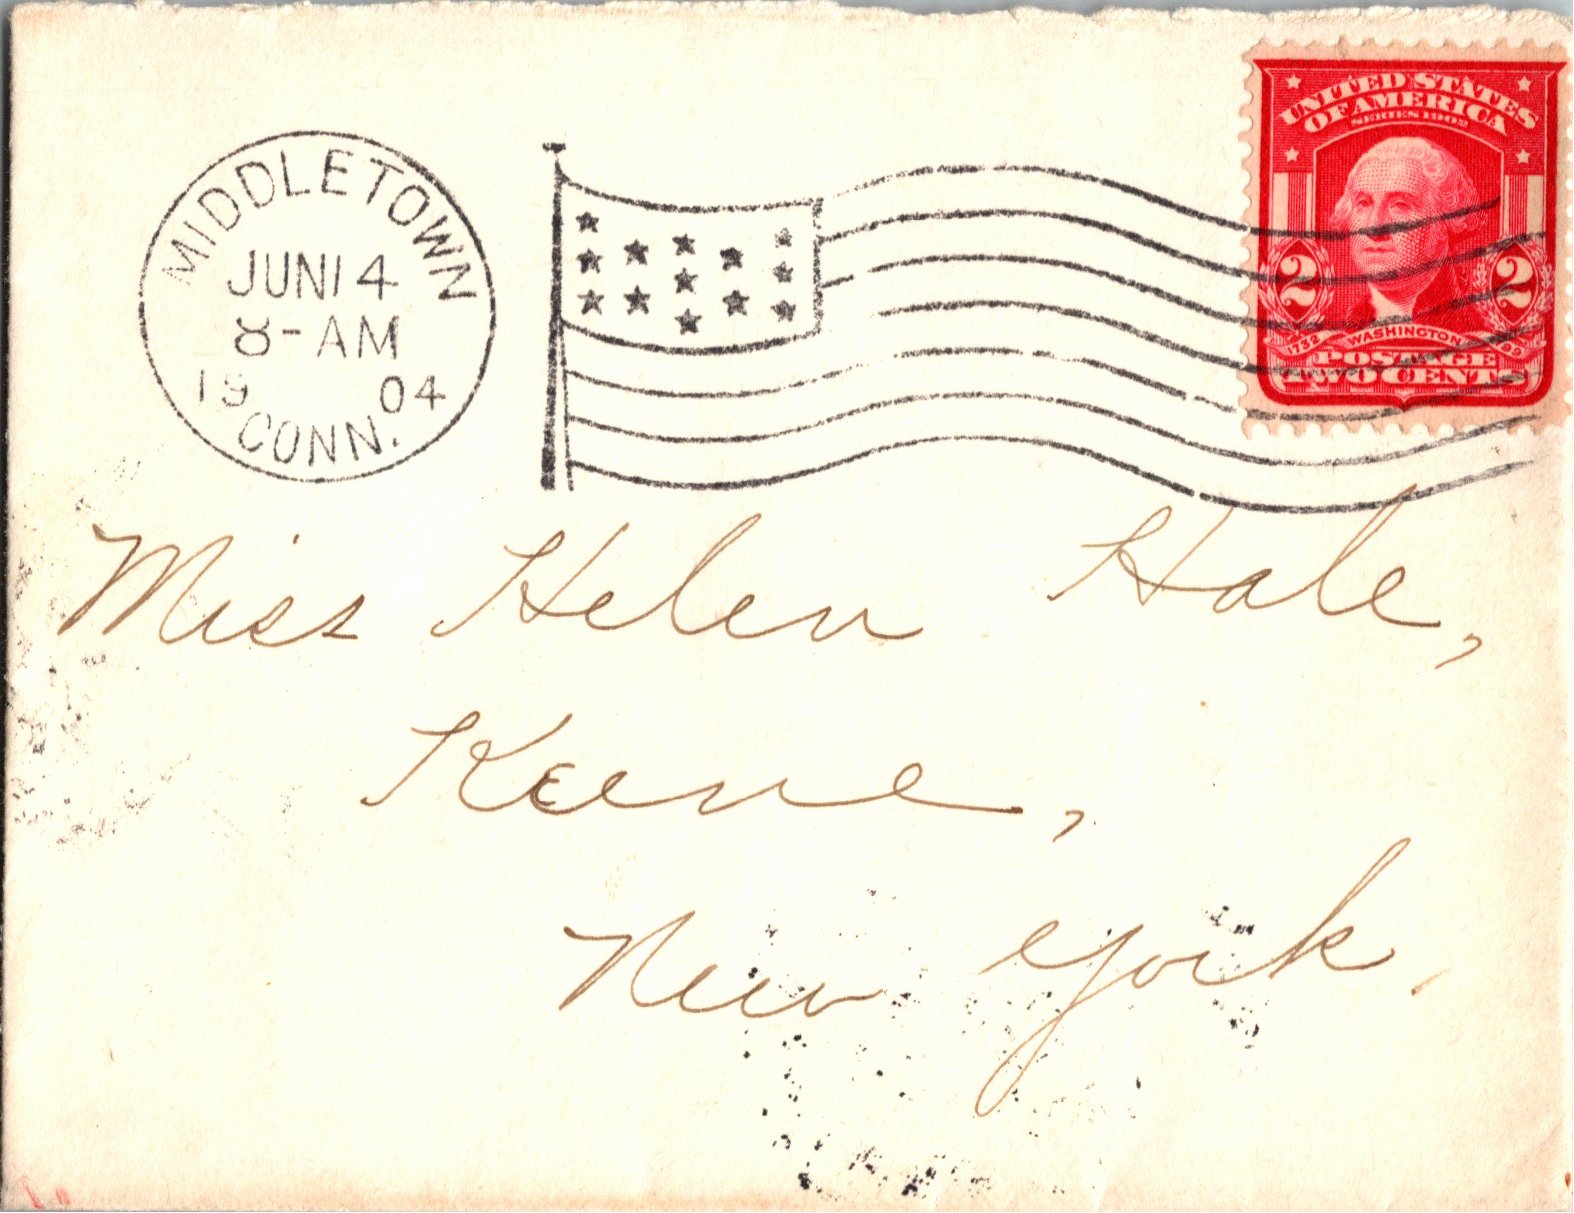 UNITED STATES
OF AMERICA
SERIES 1902
2 2
1732 WASHINGTON
POSTAGE
TWO CENTS
MIDDLETOWN
JUN 14
8-AM
19 04
CONN.
Miss Helen Hale,
Keene,
New York.